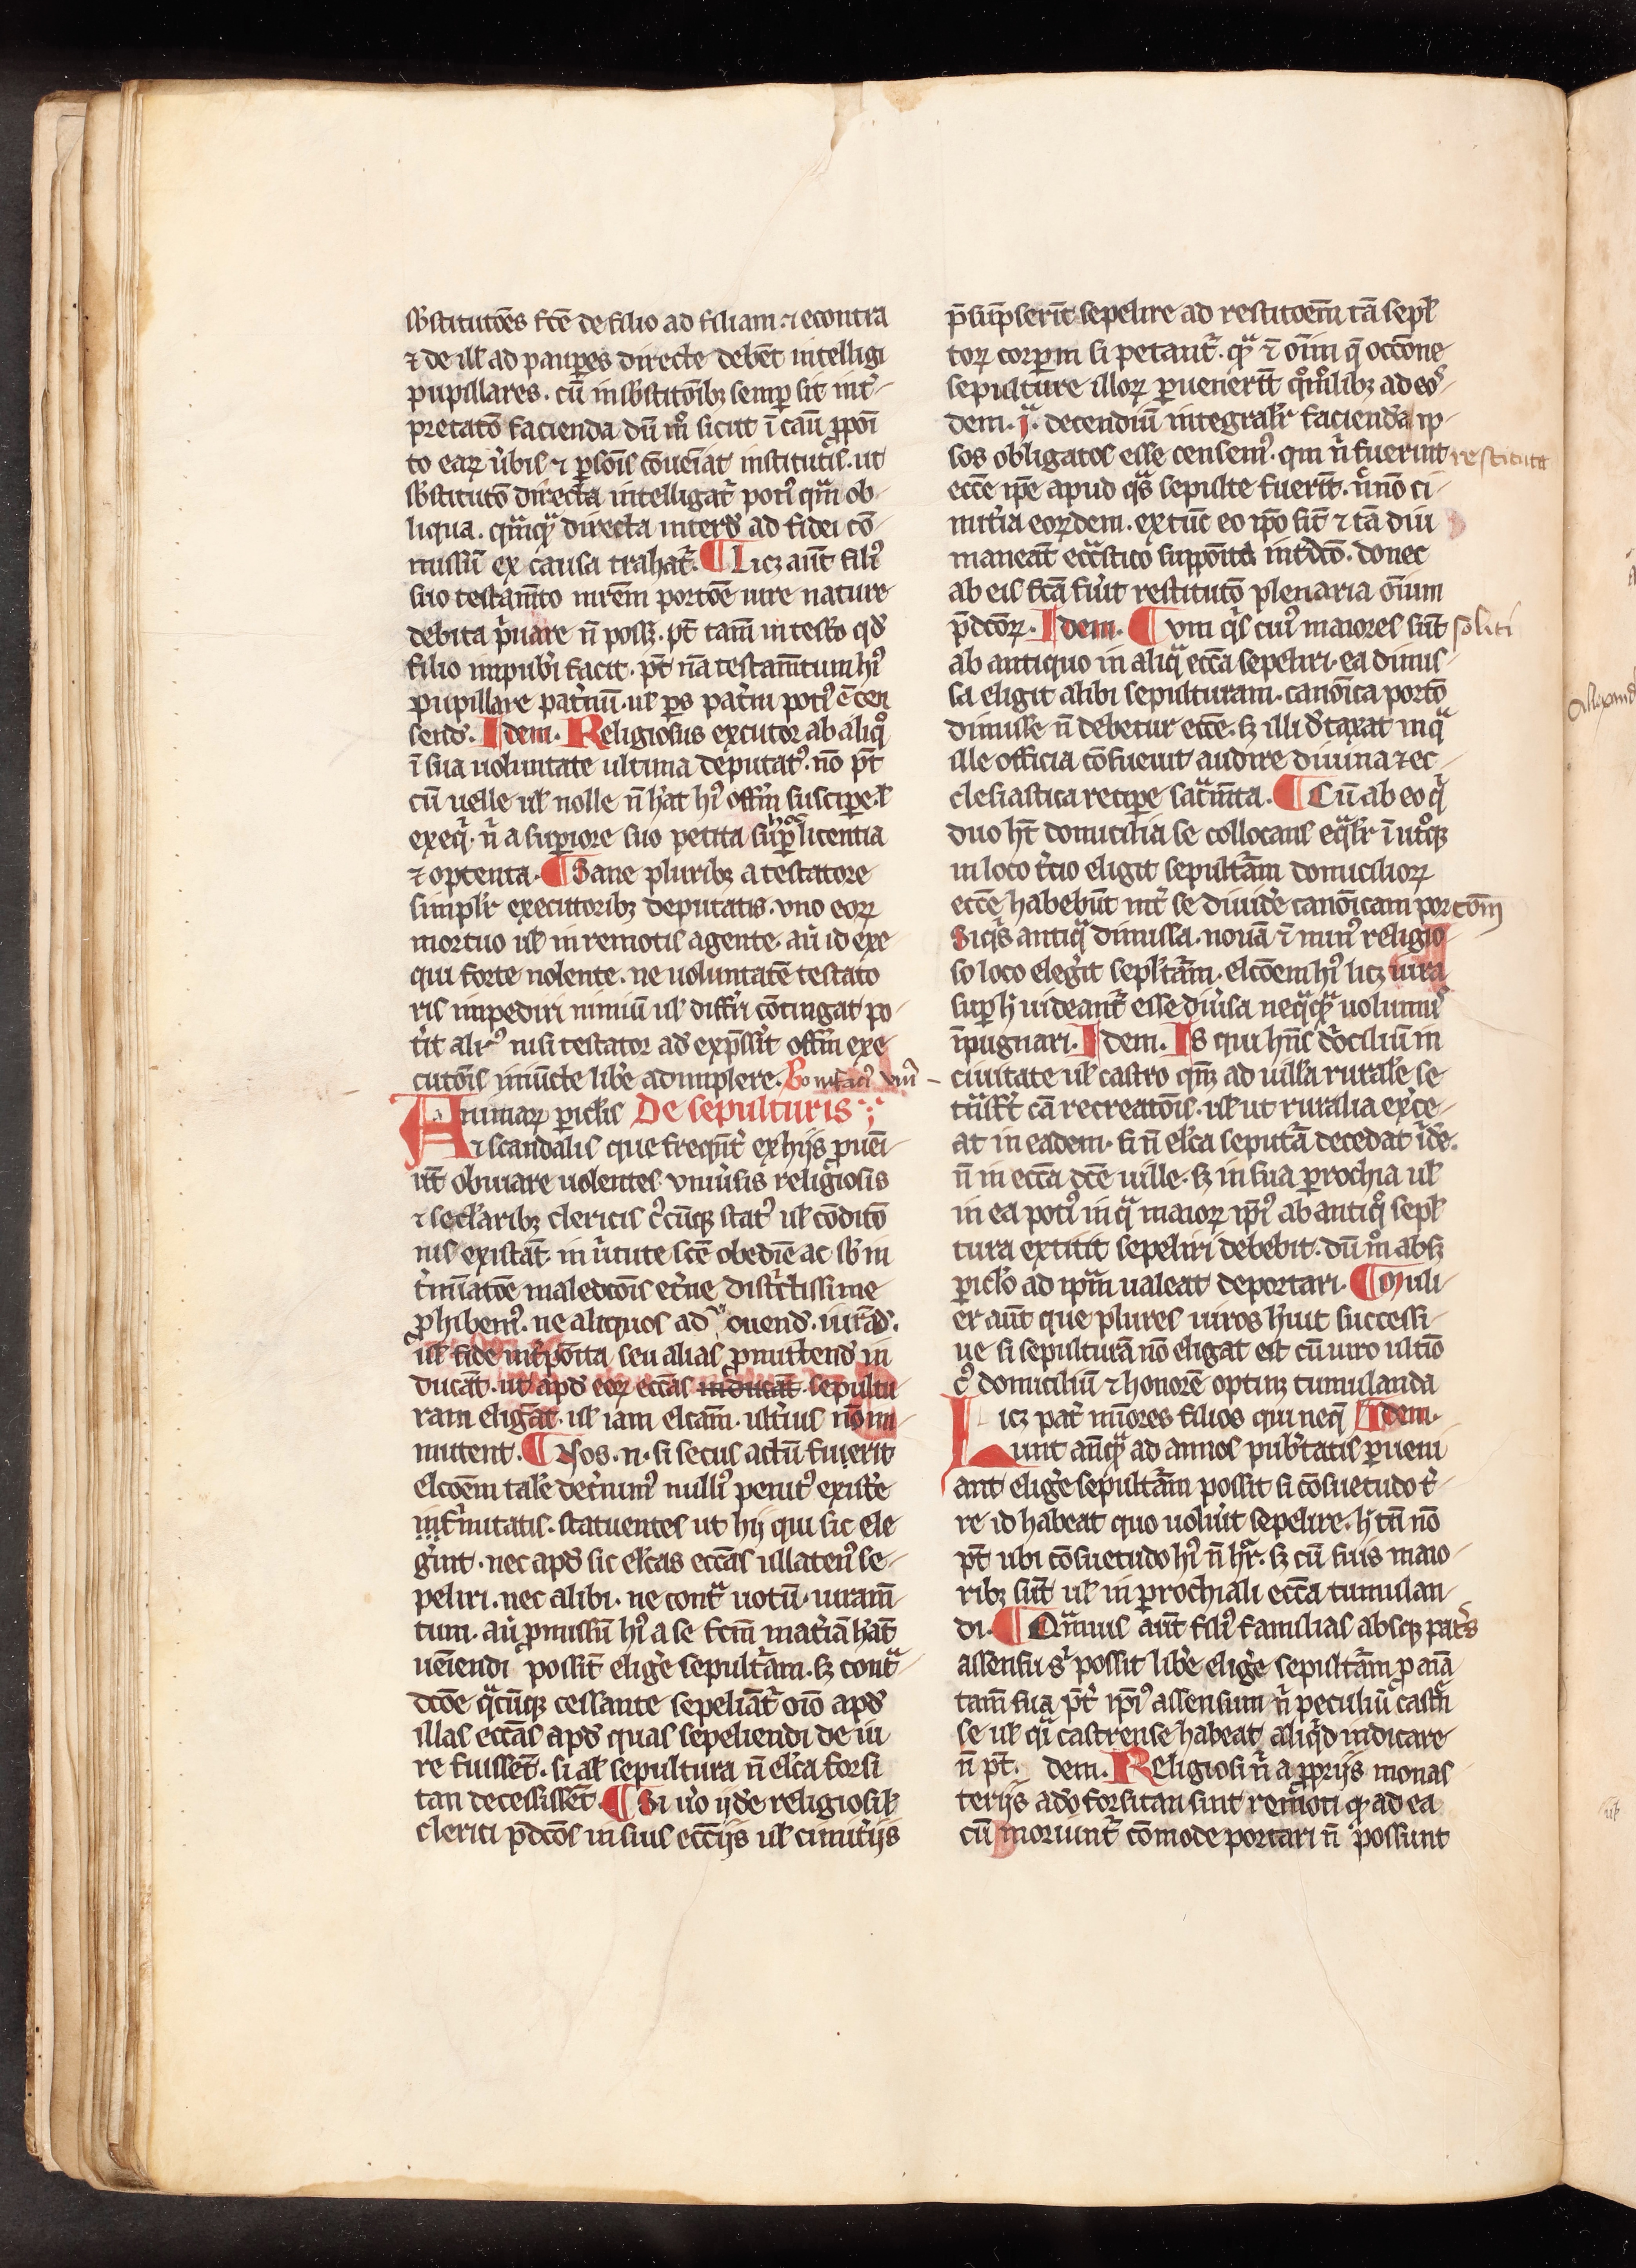 sb̄stitutōes fc̄e de filio ad filiam ⁊ econtra
⁊ de ill̄ ad paup̲es directe debēt intelligi
pupillares . cū in sb̄stitōibꝫ semp̲ sit int̾-
pretatō facienda dū m̊ sicut ī cau ꝓpoī
to eaꝝ v̾bis ⁊ p̲sōis cōueīat institutis . ut
sb̄stitutō directa intelligat̾ poti᷒ qm̄ ob-
liqua . qm̄qᷓ directa interd̾ ad fidei cō-
missū ex causa trahat̾. ¶ Licꝫ aūt fili᷒
suo testām̄to mrēm portōe iure nature
debita p̾uare n̄ possꝫ . pt̄ tam̄ in testo qd̾
filio impub̾i facit . pt̄ nā testam̄tum hi᷒
pupillare pat̾nū . ul̄ ps pat̾ni poti᷒ ē cen
send̾. Idem . Religiosus executor ab aliqͦ
ī sua uoluntate ultima deputat᷒ . nō pt̄
cū uelle ul̄ nolle n̄ h̾at hi᷒ offm̄ suscipe . l̄
exeq̾ . n̄ a sup̲iore suo petita sup̲ hoc licentia
⁊ optenta . ¶ Sane pluribꝫ a testatore
simplr̄ executoribꝫ deputatis . vno eoꝝ
mortuo ul̄ in remotis agente . au̾ id exe
qui forte nolente . ne uoluntatē testato
ris impediri nimiū ul̄ diffr̾i cōtingat po-
t̾it alr̾᷒ nisi testator ad exp̄ssīt offm̄ exe
cutōis iniūcte lib̾e adimplere. Bonifaci᷒ viii᷒ -
Animaꝝ picl̄is De sepulturis
⁊ scandalis que freq̄nt̾ ex hijs ꝓuēi-
ūt obuiare uolentes vniu̾sis religiosis
⁊ seclaribꝫ clericis c᷒cūqꝫ stat᷒ ul̄ cōditō
nis existāt in v̾tute scē obedīe ac sb̾ in
t̾miatōe maledcōis et̾ne dist̾ctissime
ꝓhibem᷒ . ne aliquos ad vouend̾ . iurād̾.
ul̄ fide int̾pōita seu alias ꝓmittend̾ in
ducāt . ut apd̾ eoꝝ eccās inducāt sepultu
ram eligāt . ul̄ iam elcām . ult̾ius nō im-
mutent . ¶ Nos . n . si secus actū fuierit
elcōem tale det̾nim᷒ nulli᷒ penit᷒ exist̾e
inf̾mitatis . statuentes ut hij qui sic ele
g̾int . nec apd̾ sic elc̄as eccās ullaten᷒ se-
peliri . nec alibi . ne contᷓ uotū . iuram̄
tum . au̾ ꝓmissū hi᷒ a se fcm̄ mat̾iā h̾at̄
ueīendi possīt elig̾e sepult̾am . sꝫ contᷓ-
dcōe qᷓcūqꝫ cessante sepeliāt̾ oīo apd̾
illas eccās apd̾ quas sepeliendi de iu
re fuissēt . si al̄ sepultura n̄ elc̄a forsi
tan decessissēt . ¶ Si u̾o ijdē religiosi l̄
clerici p̄dcōs in suis ecc̄ijs ul̄ cimit̾ijs
p̄sūpserīt sepelire ad restitoēm tā sepl̄
toꝝ corpm si petant̾ . qᷓ ⁊ oīm q̄ occōne
sepulture illoꝝ p̲uenerīt qͦmͦlibꝫ ad eos̾
dem . īᷓ . decendiū integralr̄ facienda ip-
sos obligatos esse censem᷒ . qui n̄ fuerint restituta
ecc̄e ip̄e apud qᷓs sepulte fuerīt . n̾nō ci-
mit̾ia eoꝝdem . extūc eo ip̄o sīt ⁊ tā diu
maneāt eccᷓstico suppōita int̾dcō . donec
ab eis fcā fu̾it restitutō plenaria oīum
p̄dcōꝝ . Idem . Cvm q̾s cui᷒ maiores sūt soliti
ab antiquo in aliqᷓ eccā sepeliri . ea dimis-
sa eligit alibi sepulturam . canōica portō
dimisse n̄ debetur ecce . sꝫ illi dtaxat in qᷓ
ille officia cōsueuit audire diuina ⁊ ec-
clesiastica recipe sacᷓm̄ta . ¶ Cū ab eo q̾
duo ht̄ domicilia se collocans eqᷓlr̄ ī utͦqꝫ
in loco t̾cio eligit sepult̾am domicilioꝝ
ecce habebūt int̾ se diuid̾e canōicam portōm
Siqᷓs antiqᷓ dimissa . nouā ⁊ min᷒ religio
so loco eleg̾it sepl̄t̾am . elcōem hi᷒ licꝫ iura
sup̲ h̾ uideant̾ esse diu̾sa neqᷓqᷓ uolum᷒
īpugnari . Idem . Is qui hn̄s d̾ocilium in
ciuitate ul̄ castro qn̄qꝫ ad uilla rurale se
tᷓnsfr̾t cā recreatōis . ul̄ ut ruralia ex̾ce-
at in eadem . si n̄ elc̄a seput̾ā decedat īde .
n̄ in eccā dcē uille . sꝫ in sua p̲rochia ul̄
in ea poti᷒ in qᷓ maioꝝ ip̄i᷒ ab antiqͦ sepl̄
tura extitit sepeliri debebit . dū mͦ absꝫ
picl̄o ad ip̄am ualeat deportari . ¶ Muli-
er aūt que plures uiros h̾uit successi-
ue si sepulturā nō eligat est cū uiro ultīo
c᷒ domiciliū ⁊ honorē optinꝫ tumulanda
Licꝫ pat̾ mīores filios qui neq̄ Idem .
unt an̄qᷓ ad annos pub̾tatis p̲ueni
ant elig̾e sepult̾am possit si cōsuetudo t̾-
re id habeat quo uolu̾it sepelire . h̾ tn̄ nō
pt̄ ubi cōsuetudo hi᷒ n̄ hr̄ . sꝫ cū suis maio-
ribꝫ sūt ul̄ in p̲rochiali eccā tumulan-
di . ¶ Qᷓmuis aūt fili᷒ familias absqꝫ patᷓs
assensu s᷒ possit lib̾e elig̾e sepult̾am ꝓ aīa
tam̄ sua pt̾ ip̄i᷒ assensum n̄ peculiū cast̾n
se ul̄ q̾i castrense habeat aliq̾d iudicare
n̄ pt̄ . dem . Religiosi n̄ a ꝓprijs monas
terijs adō forsitan sint remoti qꝫ ad ea
cū moriunt̾ cōmode portari n̄ possunt